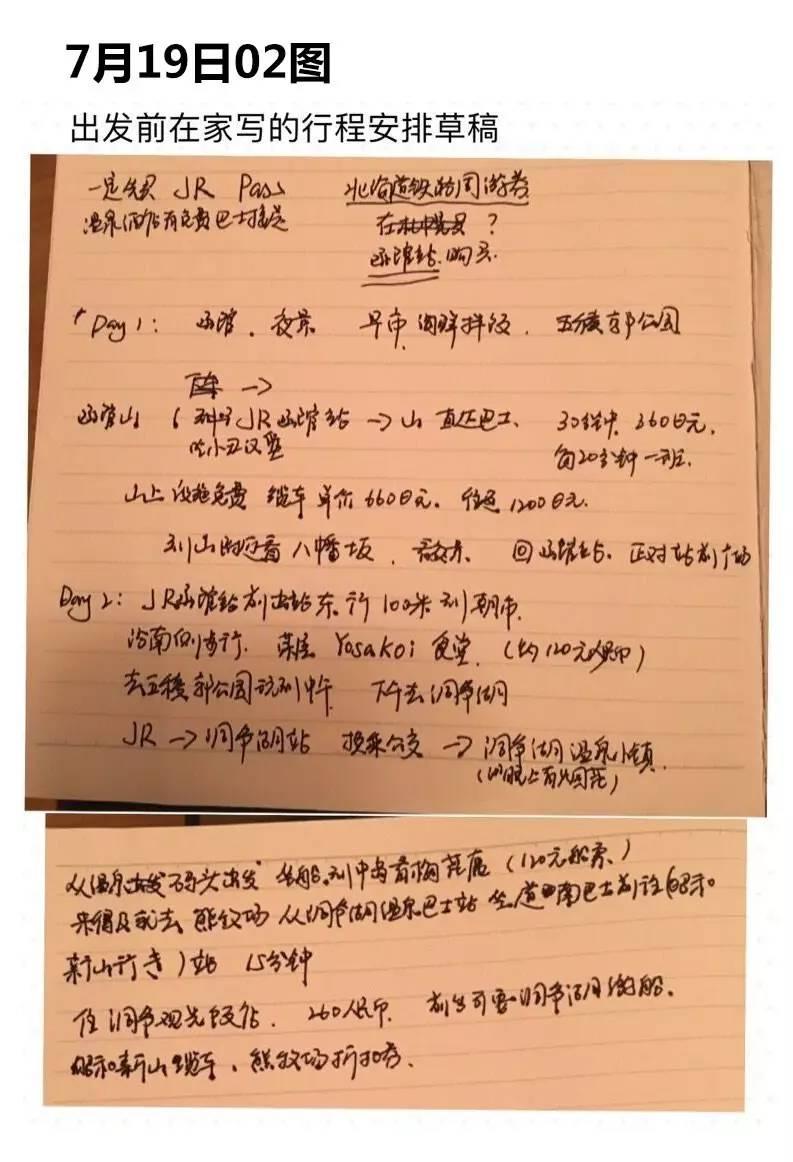 7月19日02图
出发前在家写的行程安排草稿
一定先买 JR Pass 北海道铁路周游券
温泉酒店有免费巴士接送 在札幌买？
函馆站购买
Day 1: 函馆、夜景 早市,海鲜拌饭、五稜郭公园
→
函馆山 JR函馆站 → 山 直达巴士、30分钟,360日元,
吃小丑汉堡 每20分钟一班.
山上设施免费 缆车单价660日元。往返1200日元.
到山附近看八幡坂、夜景、回函馆站、正对站前广场
Day 2: JR函馆站前出站东行100米到朝市.
沿南侧步行. 菜屋 Yosakoi 食堂.(约120元人民币)
去五稜郭公园玩到中午 下午去洞爷湖
JR → 洞爷湖站 换乘公交 → 洞爷湖温泉小镇.
(晚上有烟花)
从温泉出发码头出发 坐船到中岛(120元船票)
来得及就去熊牧场 从洞爷湖温泉巴士站 坐道南巴士前往(昭和
新山行き)站 15分钟
住洞爷观光饭店、260人民币、前台可要洞爷湖游船、
昭和新山缆车、熊牧场折扣券.